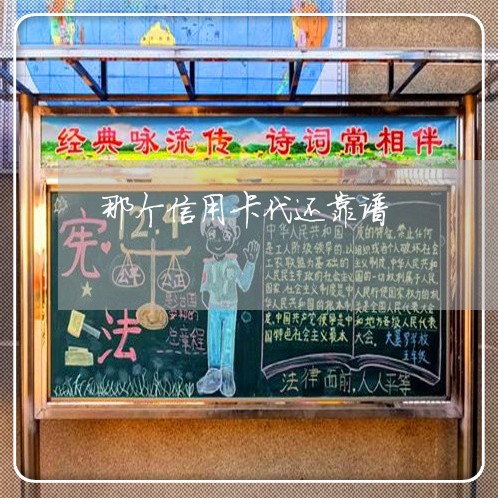 经典咏流传 诗词常相伴
那个信用卡代还靠谱
宪法
12.4
公平
公正
总章程
中华人民共和国
是工人阶级领导的,以
工农联盟为基础的
人民民主专政的社会主义
国家,社会主义制度是中
华人民共和国的根本制
度,中国共产党领导是中
国特色社会主义最本
质的特征,禁止任何
组织或者个人破坏社会
主义制度,中华人民共和
国的一切权利属于人民,
人民行使国家权力的机
关是全国人民代表大会
和地方各级人民代表
大会。
五年级
法律面前,人人平等